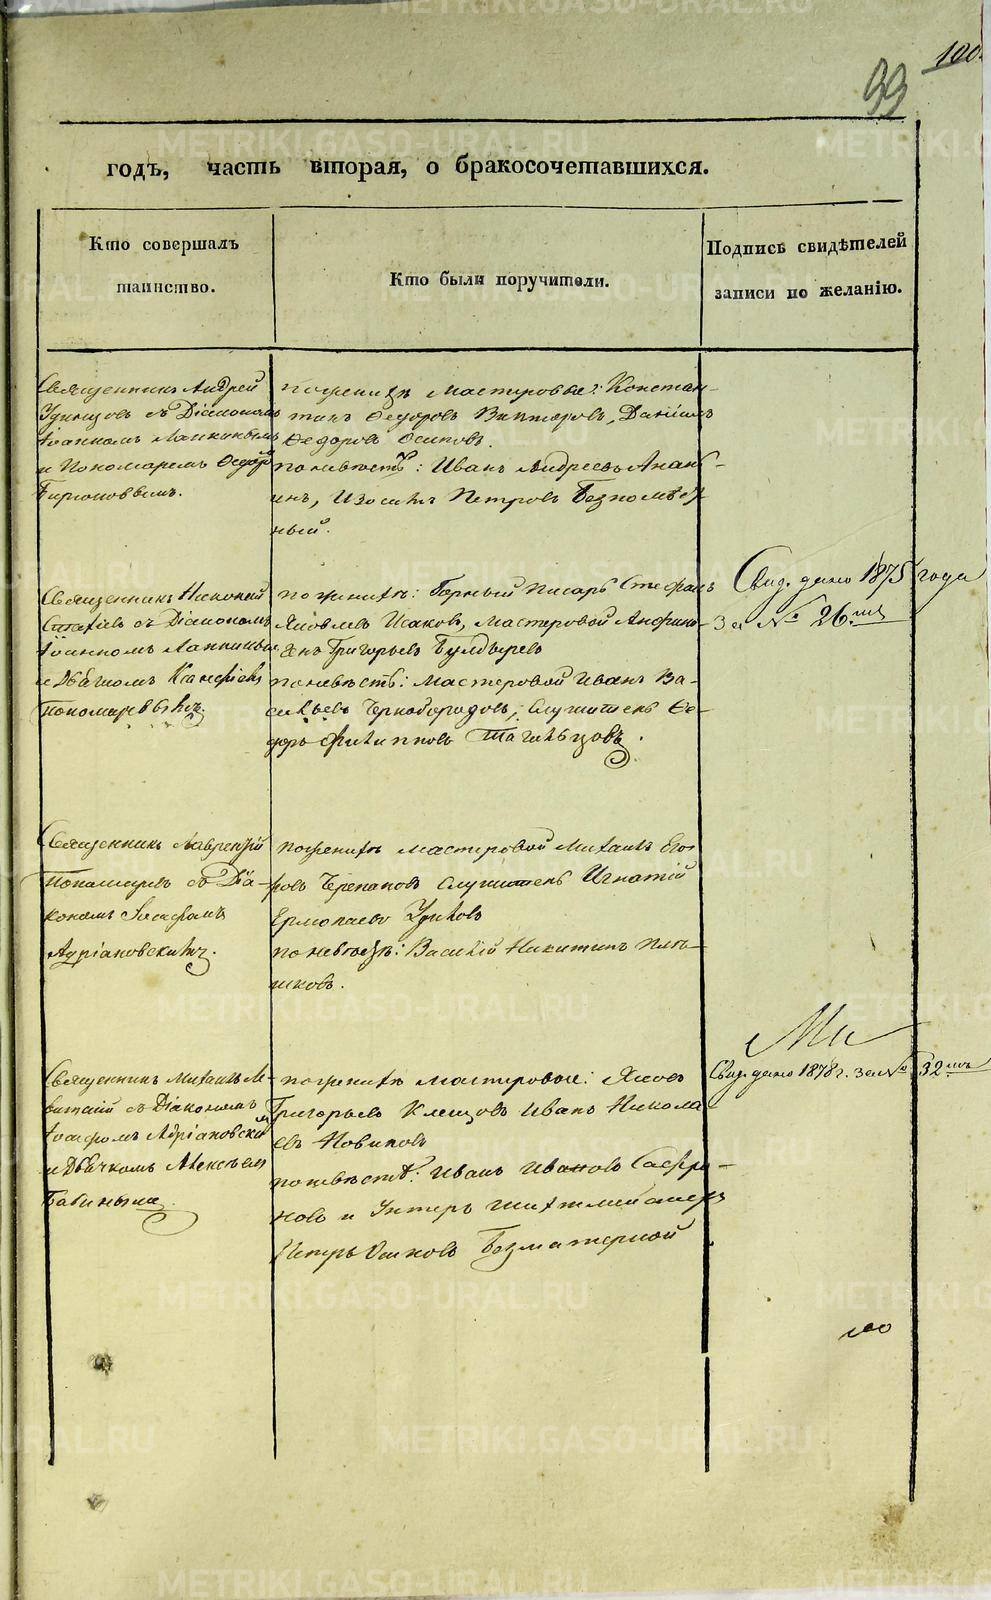 100
99
годъ, часть вторая, о бракосочетавшихся.
Кто совершалъ
таинство.
Кто были поручители.
Подпись свидѣтелей
записи по желанію.
Священникъ Андрей
Удинцовъ съ Діакономъ
Іоанномъ Лапкинымъ
и Пономаремъ Ѳедор
Бирюковымъ.
по женихѣ Мастеровые: Констан-
тинъ Ѳедоровъ Даніилъ
Ѳедоровъ Осиповъ.
по невѣстѣ: Иванъ Андреевъ Анань-
инъ, Изосимъ Петровъ Безпомощ
ный.
Священникъ Никоній
съ Діакономъ
Іоанномъ Лапкинымъ
и Дьячкомъ
Пономаревымъ.
по женихѣ: Горный писарь Стефанъ
Яковлевъ Исаковъ, Мастеровой Анфино-
генъ Григорьевъ Булдыревъ
по невѣстѣ: Мастеровой Иванъ Ва-
сильевъ Чернобородовъ, Служитель Ѳе-
доръ Филипповъ Тагильцовъ.
Свид. дано 1875 года
За № 26.
Священникъ Лаврентій
Пономаревъ съ Діа-
кономъ Іоасафомъ
Адріановскимъ.
по женихѣ Мастеровой Михаилъ Его
ровъ Черепановъ Служитель Игнатій
Ермолаевъ
по невѣстѣ: Василій Никитинъ Плю-
шковъ.
Священникъ Михаилъ Ле-
витскій съ Діакономъ
Іоасафомъ Адріановски
и Дьячкомъ Алексѣем
Бабинымъ.
по женихѣ мастеровые: Яковъ
Григорьевъ Клещовъ Иванъ Никола
евъ Новиковъ
по невѣстѣ: Иванъ Ивановъ Сафро-
новъ и Унтеръ шихтмейстеръ
Петръ Безматерной
Свид. дано 1878 г. за № 32
METRIKI.GASO-URAL.RU